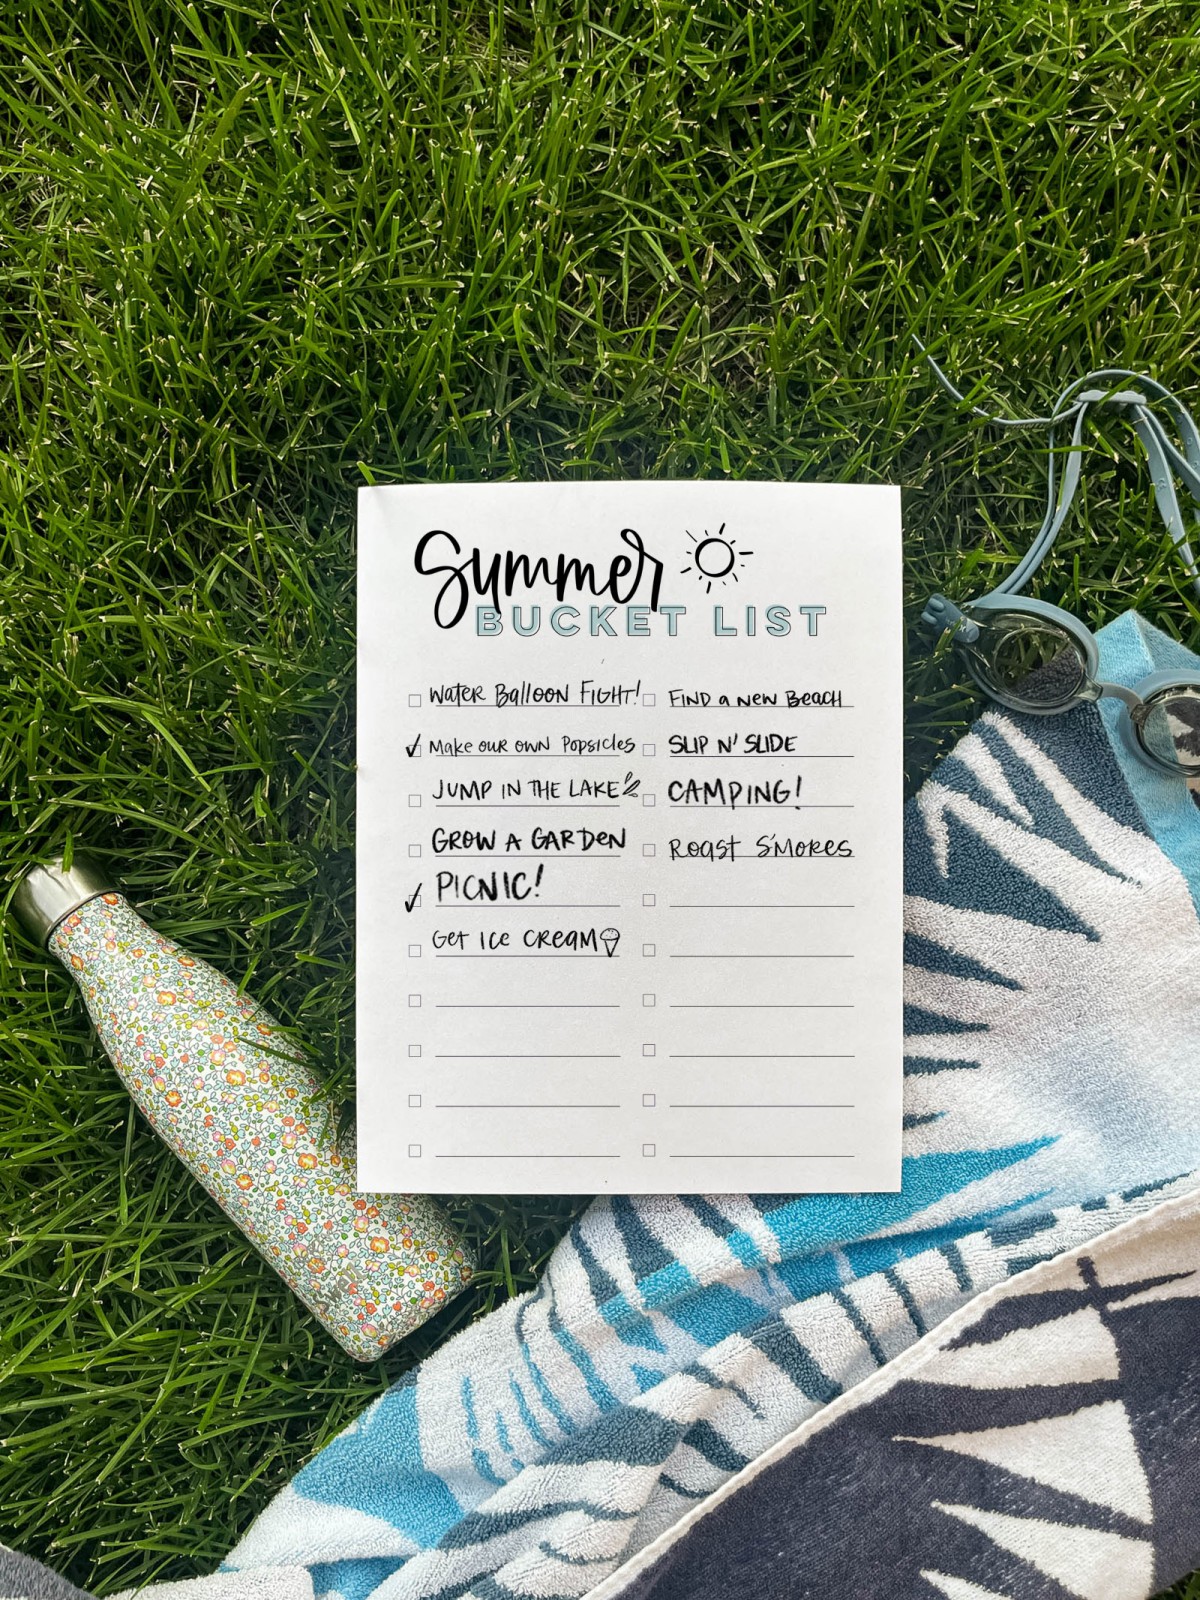 Summer
BUCKET LIST
Water Balloon Fight!
Make our own Popsicles
Jump in the Lake
Grow a Garden
Picnic!
Get Ice Cream
Find a new Beach
Slip N' Slide
Camping!
Roast S'mores